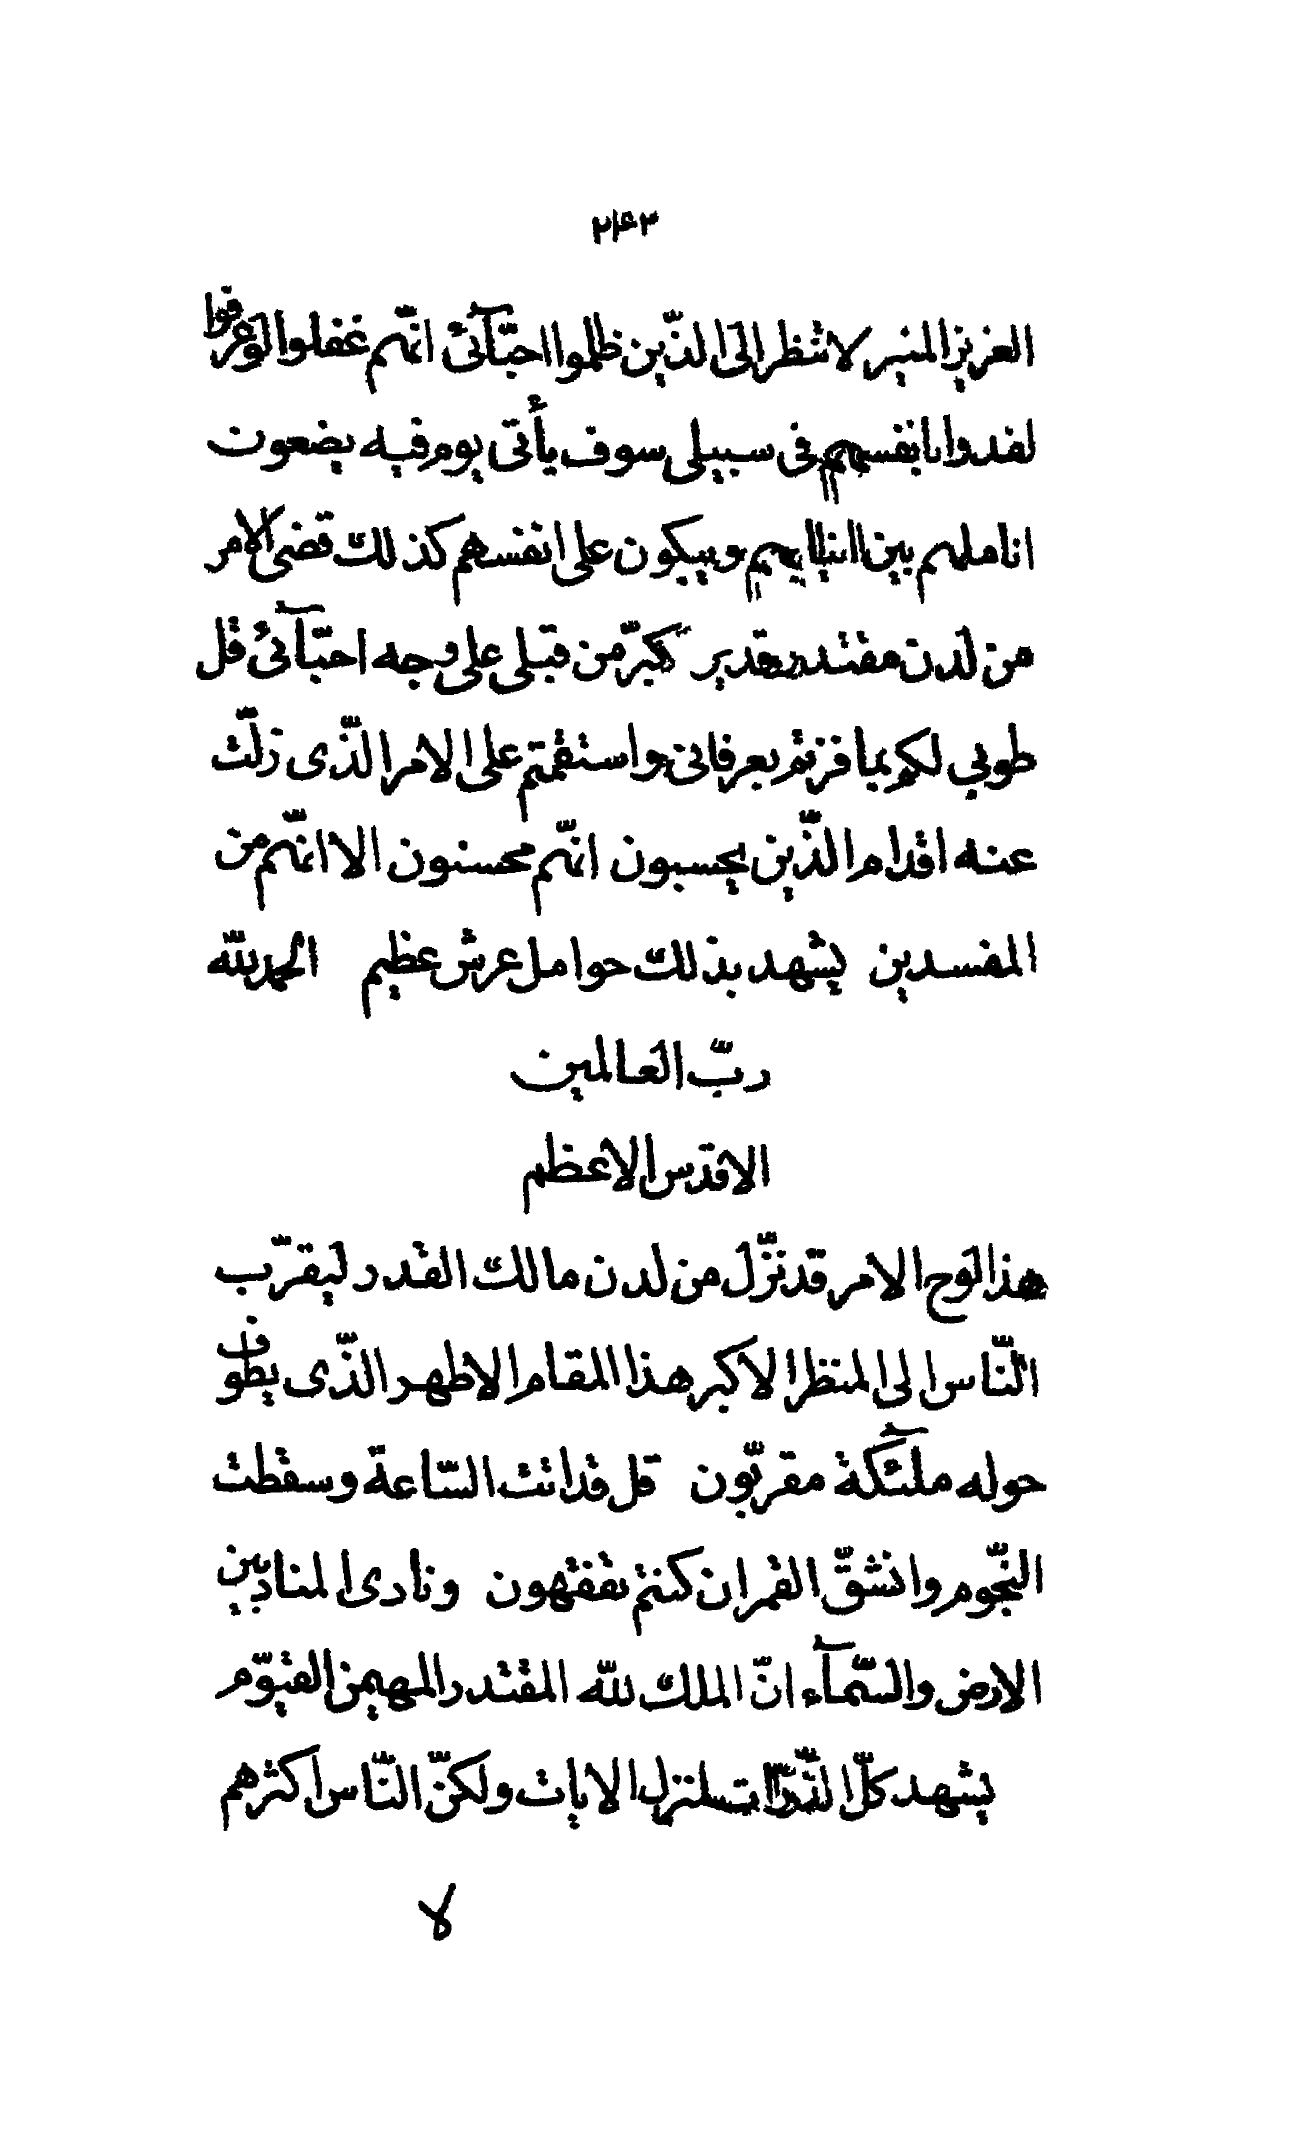 ۲۴۳
العزیز المنیر لا تنظر الی الّذین ظلموا احبّآئی انّهم غفلوا لو عرفوا
لفدوا بانفسهم فی سبیلی سوف یأتی یوم فیه یضعون
اناملهم بین انیابهم و یبکون علی انفسهم کذلک قضی الامر
من لدن مقتدر قدیر کبّر من قبلی علی وجه احبّآئی قل
طوبی لکم بما فزتم بعرفانی و استقمتم علی الامر الّذی زلّت
عنه اقدام الّذین یحسبون انّهم محسنون الا انّهم من
المفسدین یشهد بذلک حوامل عرش عظیم الحمد لله
ربّ العالمین
الاقدس الاعظم
هذا لوح الامر قد نزّل من لدن مالک القدر لیقرّب
النّاس الی المنظر الاکبر هذا المقام الاطهر الّذی یطوف
حوله ملٓئکة مقربّون قل قد اتت السّاعة و سقطت
النّجوم و انشقّ القمر ان کنتم تفقهون و نادی المناد بین
الارض و السّمآء انّ الملک لله المقتدر المهیمن القیّوم
یشهد کلّ الذّرّات لمنزل الایات ولکنّ النّاس اکثرهم
لا